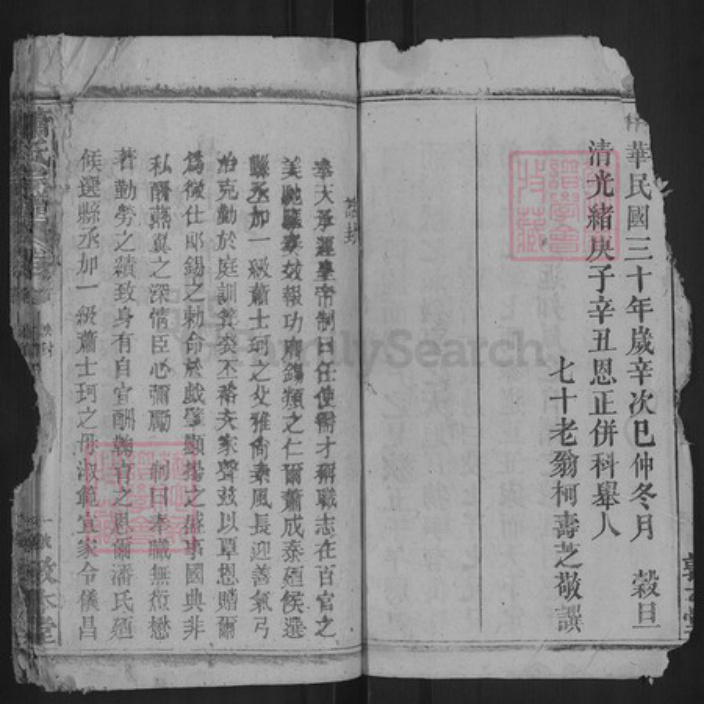 華民國三十年歲辛次巳仲冬月 穀旦
清光緒庚子辛丑恩正併科舉人
七十老翁柯壽芝敬譔
誥封
奉天承運皇帝制曰任使需才稱職志在百官之
美馳驅奏效報功膺錫類之仁爾蕭成泰廼候選
縣丞加一級蕭士珂之父雅尙素風長迎善氣弓
冶克勤於庭訓箕裘丕裕夫家聲玆以覃恩贈爾
爲徵仕郎錫之勅命於戲肇顯揚之盛事國典非
私酧燕翼之深情臣心彌勵 制曰奉職無愆懋
著勤勞之績致身有自宜酬鞠育之恩爾潘氏廼
候選縣丞加一級蕭士珂之母淑範宜家令儀昌
蕭氏宗譜
敦本堂
FamilySearch